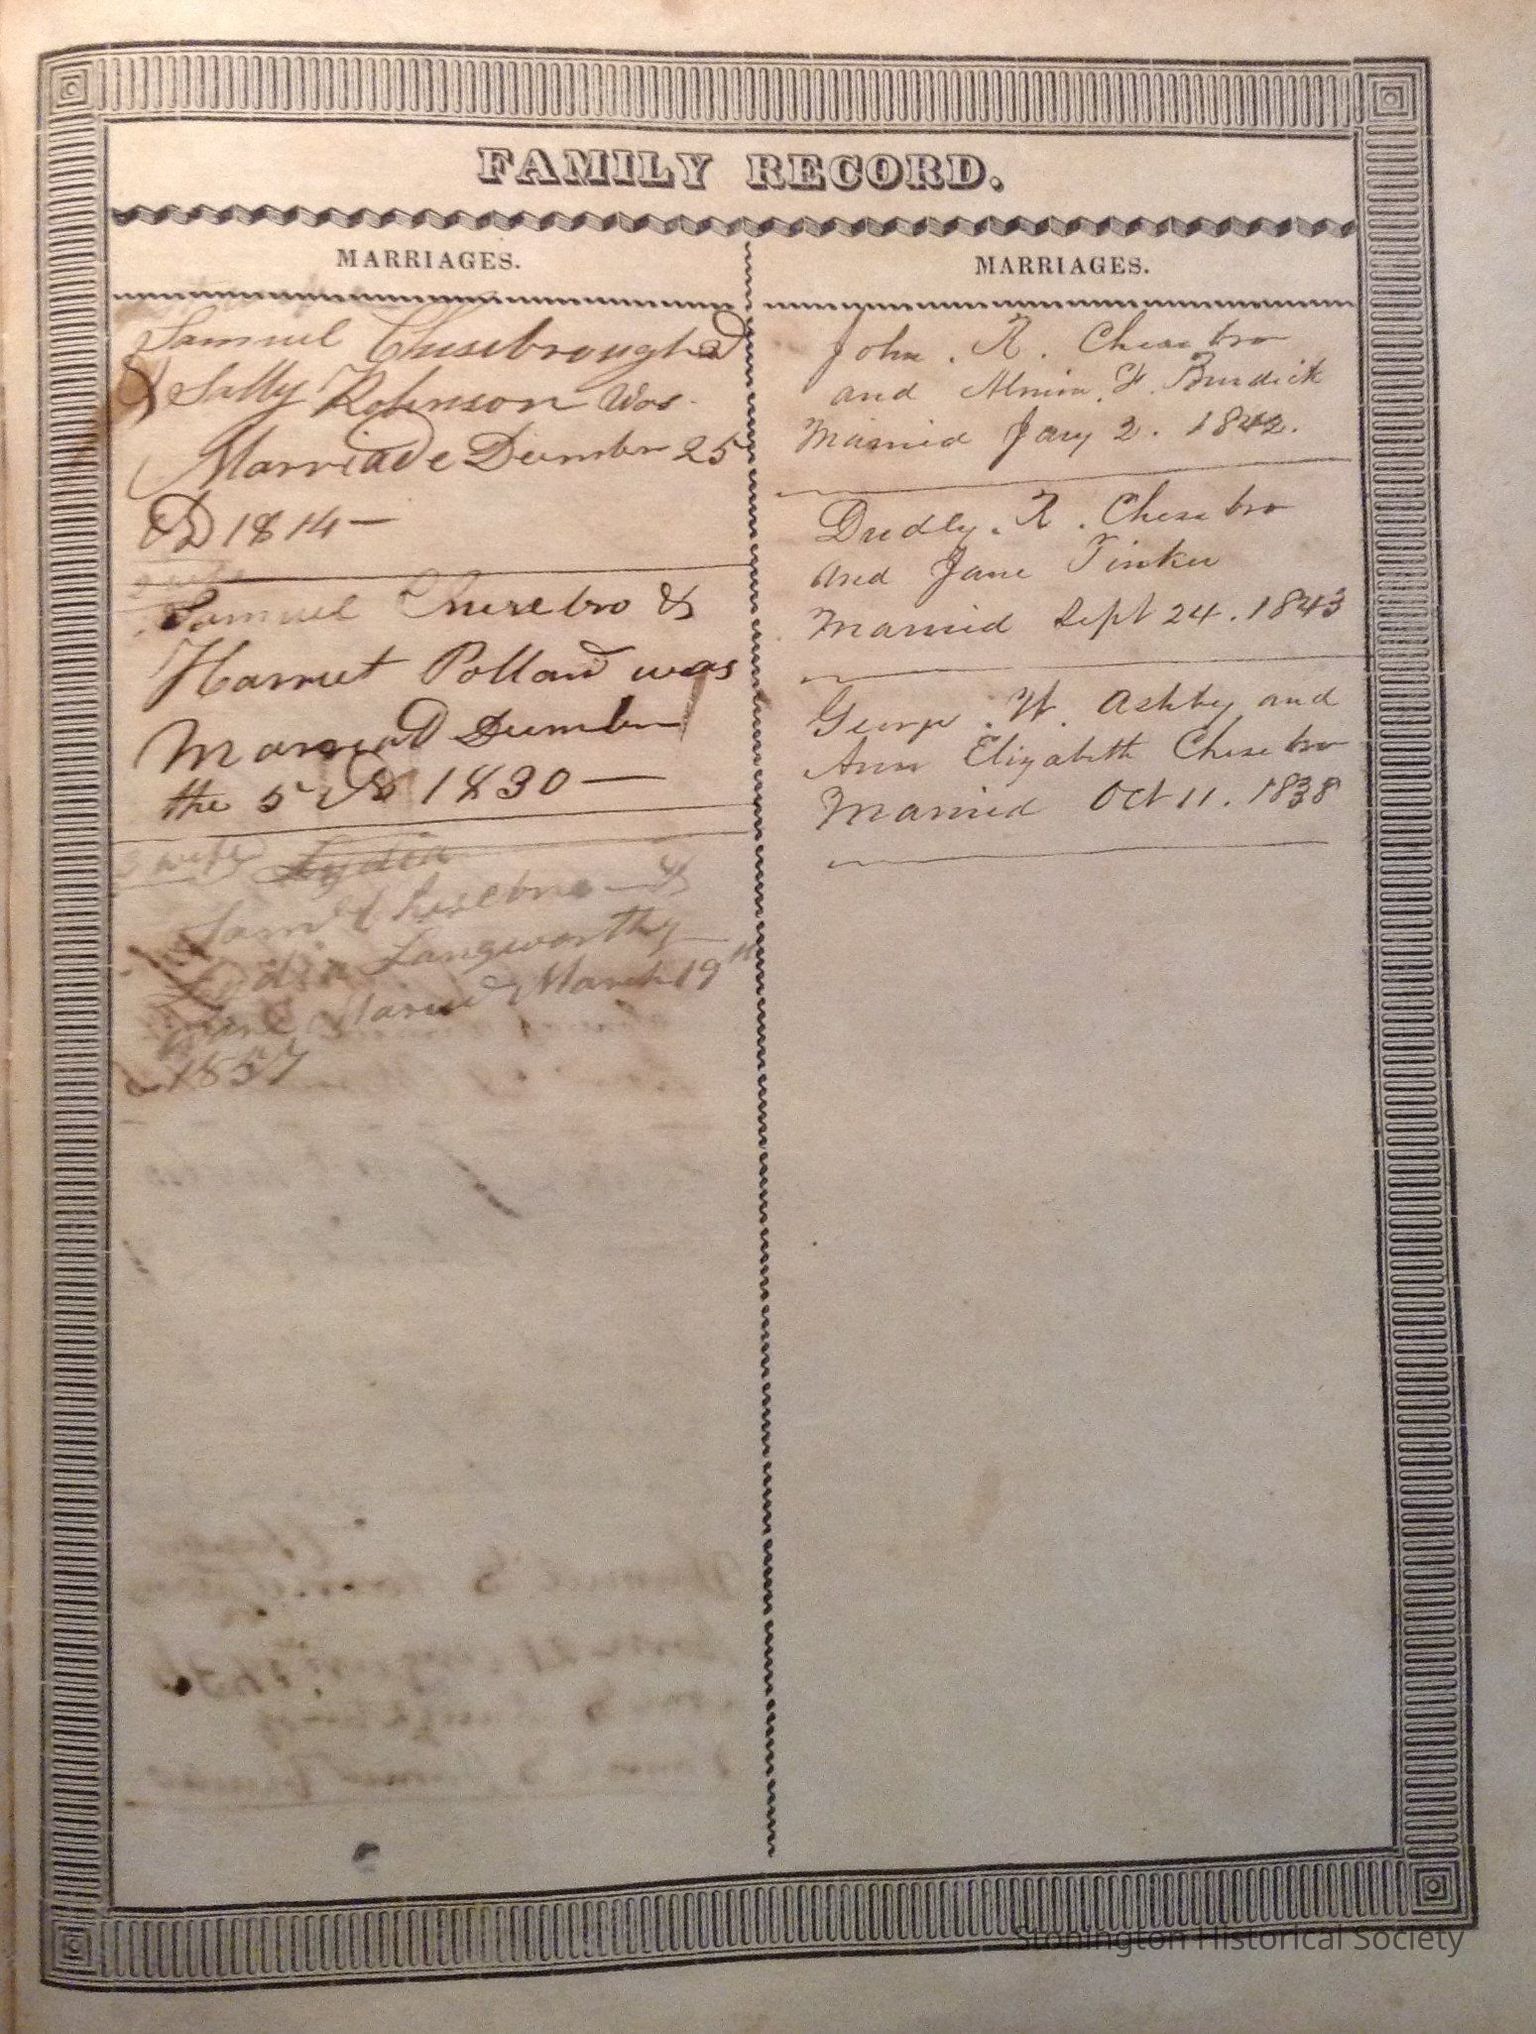 FAMILY RECORD.
MARRIAGES.
Samuel Chusebrough
& Sally Robinson Was
Married December 25
AD 1814 —
2 wife
Samuel Chesebro &
Harriet Pollard was
Married December
the 5 AD 1830 —
3 wife Lydia
Saml Chesebro — &
Lydia Langworthy
were Married March 19th
1857
MARRIAGES.
John . R . Chesebro
and Almira . F . Burdick
Married Jany 2 . 1842 .
Dudly . R . Chesebro
and Jane Tinker
Married Sept 24 . 1843
George . W . Ashby and
Ann Elizabeth Chesebro
Married Oct 11 . 1838
Stonington Historical Society